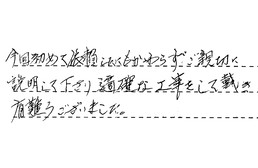 今回初めて依頼したにもかかわらずご親切に
説明して下さり適確な工事をして戴き
有難うございました。